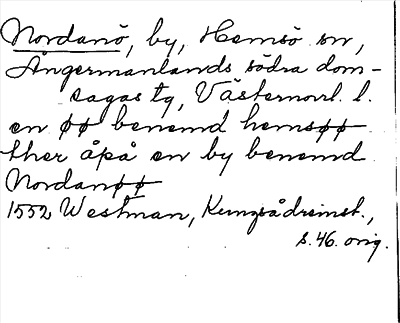 Nordanö, by, Hemsö sn,
Ångermanlands södra dom-
sagas tg, Västernorrl. l.
en øø benemd hemsøø
ther åpå en by benemd
Nordanøø
1552 Westman, Kungsådreinst.,
s. 46. orig.